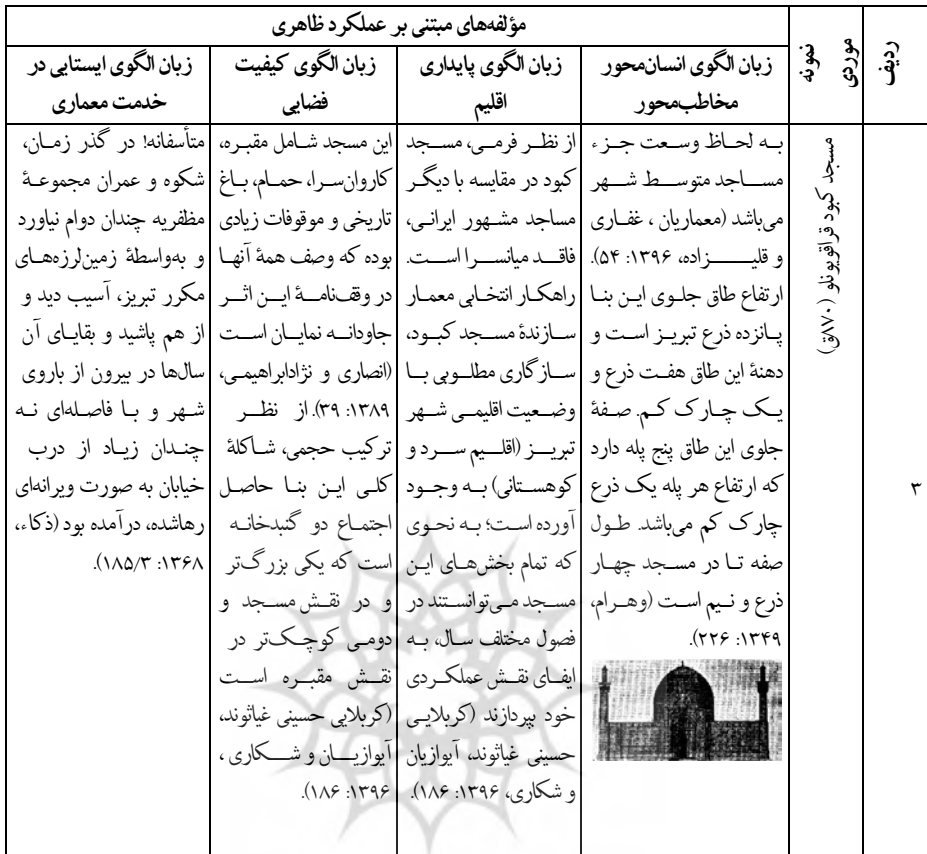 مؤلفه‌های مبتنی بر عملکرد ظاهری
ردیف
نمونه
موردی
زبان الگوی انسان‌محور
مخاطب‌محور
زبان الگوی پایداری
اقلیم
زبان الگوی کیفیت
فضایی
زبان الگوی ایستایی در
خدمت معماری
۳
مسجد کبود قراقویونلو (۸۷۰ق)
به لحاظ وسعت جزء
مساجد متوسط شهر
می‌باشد (معماریان ، غفاری
و قلیزاده، ۱۳۹۶: ۵۴).
ارتفاع طاق جلوی این بنا
پانزده ذرع تبریز است و
دهنۀ این طاق هفت ذرع و
یک چارک کم. صفۀ
جلوی این طاق پنج پله دارد
که ارتفاع هر پله یک ذرع
چارک کم می‌باشد. طول
صفه تا در مسجد چهار
ذرع و نیم است (وهرام،
۱۳۴۹: ۲۲۶).
از نظر فرمی، مسجد
کبود در مقایسه با دیگر
مساجد مشهور ایرانی،
فاقد میانسرا است.
راهکار انتخابی معمار
سازندۀ مسجد کبود،
سازگاری مطلوبی با
وضعیت اقلیمی شهر
تبریز (اقلیم سرد و
کوهستانی) به وجود
آورده است؛ به نحوی
که تمام بخش‌های این
مسجد می‌توانستند در
فصول مختلف سال، به
ایفای نقش عملکردی
خود بپردازند (کربلایی
حسینی غیاثوند، آیوازیان
و شکاری، ۱۳۹۶: ۱۸۶).
این مسجد شامل مقبره،
کاروان‌سرا، حمام، باغ
تاریخی و موقوفات زیادی
بوده که وصف همۀ آنها
در وقف‌نامۀ این اثر
جاودانه نمایان است
(انصاری و نژادابراهیمی،
۱۳۸۹: ۳۹). از نظر
ترکیب حجمی، شاکلۀ
کلی این بنا حاصل
اجتماع دو گنبدخانه
است که یکی بزرگ‌تر
و در نقش مسجد و
دومی کوچک‌تر در
نقش مقبره است
(کربلایی حسینی غیاثوند،
آیوازیان و شکاری ،
۱۳۹۶: ۱۸۶).
متأسفانه! در گذر زمان،
شکوه و عمران مجموعۀ
مظفریه چندان دوام نیاورد
و به‌واسطۀ زمین‌لرزه‌های
مکرر تبریز، آسیب دید و
از هم پاشید و بقایای آن
سال‌ها در بیرون از باروی
شهر و با فاصله‌ای نه
چندان زیاد از درب
خیابان به صورت ویرانه‌ای
رهاشده، درآمده بود (ذکاء،
۱۳۶۸: ۱۸۵/۳).